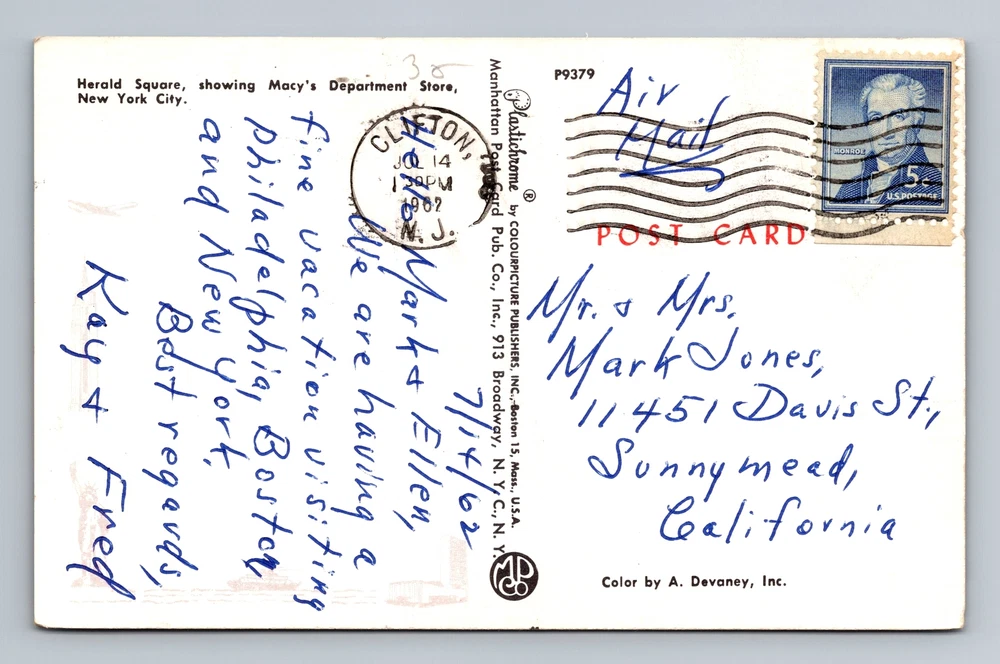 Herald Square, showing Macy's Department Store,
New York City.
35
7/14/62
Hello Mark & Ellen,
We are having a
fine vacation visiting
Philadelphia, Boston,
and New York.
Best regards,
Kay & Fred
CLIFTON,
JUL 14
1 30 PM
1962
N. J.
Plastichrome ® by COLOURPICTURE PUBLISHERS, INC., Boston 15, Mass., U.S.A.
Manhattan Post Card Pub. Co., Inc., 913 Broadway, N. Y. C., N. Y.
P9379
Air
Mail
MONROE
5¢
U.S. POSTAGE
POST CARD
Mr. & Mrs.
Mark Jones,
11451 Davis St.,
Sunnymead,
California
Color by A. Devaney, Inc.